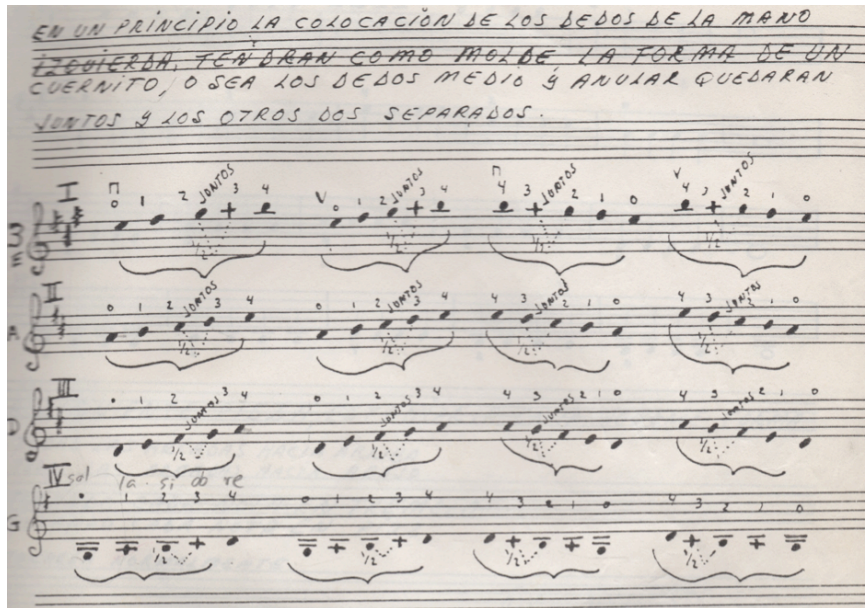 EN UN PRINCIPIO LA COLOCACIÓN DE LOS DEDOS DE LA MANO
IZQUIERDA, TENDRAN COMO MOLDE, LA FORMA DE UN
CUERNITO, O SEA LOS DEDOS MEDIO Y ANULAR QUEDARAN
JUNTOS Y LOS OTROS DOS SEPARADOS.
I 0 1 2 JUNTOS 3 4 V 0 1 2 JUNTOS 3 4 4 3 JUNTOS 2 1 0 V 4 3 JUNTOS 2 1 0
1/2 1/2 1/2 1/2
II 0 1 2 JUNTOS 3 4 0 1 2 JUNTOS 3 4 4 3 JUNTOS 2 1 0 4 3 JUNTOS 2 1 0
1/2 1/2 1/2 1/2
III 0 1 2 JUNTOS 3 4 0 1 2 JUNTOS 3 4 4 3 JUNTOS 2 1 0 4 3 JUNTOS 2 1 0
D
1/2 1/2 1/2 1/2
IV sol la si do re
0 1 2 3 4 0 1 2 3 4 4 3 2 1 0 4 3 2 1 0
G
1/2 1/2 1/2 1/2